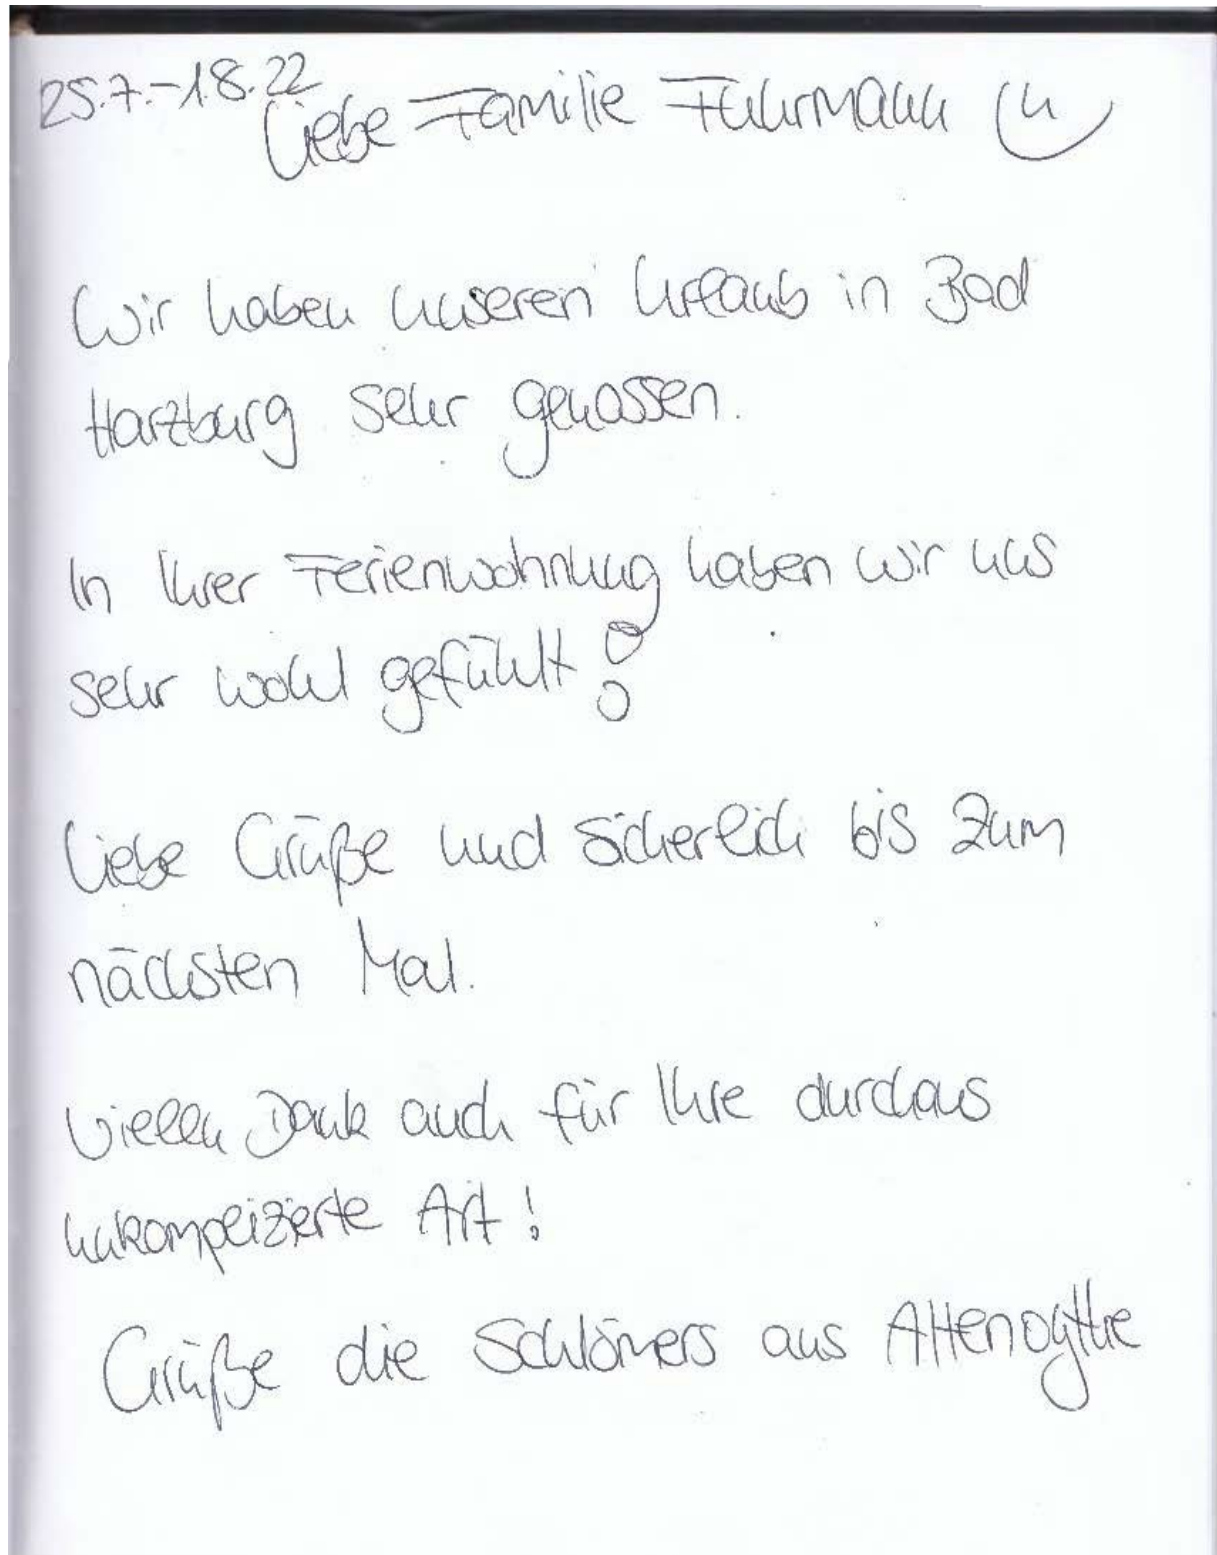 25.7.-1.8.22
Liebe Familie Fuhrmann
Wir haben unseren Urlaub in Bad
Harzburg sehr genossen.
In Ihrer Ferienwohnung haben wir uns
sehr wohl gefühlt!
Liebe Grüße und sicherlich bis zum
nächsten Mal.
Vielen Dank auch für Ihre durchaus
unkomplizierte Art!
Grüße die Schlömers aus Altenoythe